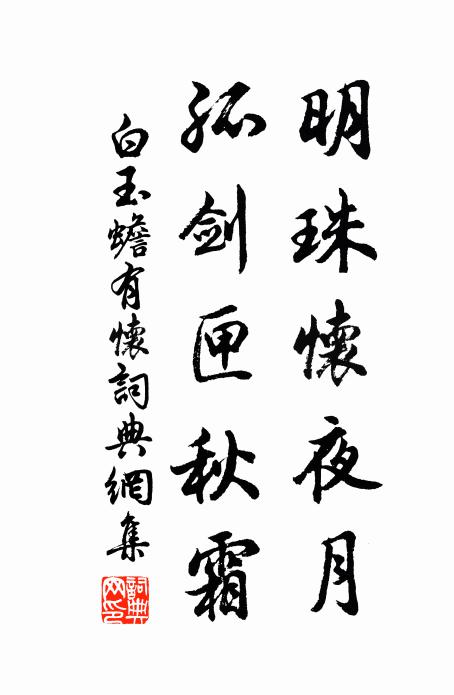 明珠懷夜月
孤劍匣秋霜
白玉蟾有懷詞典網集
詞典
网印